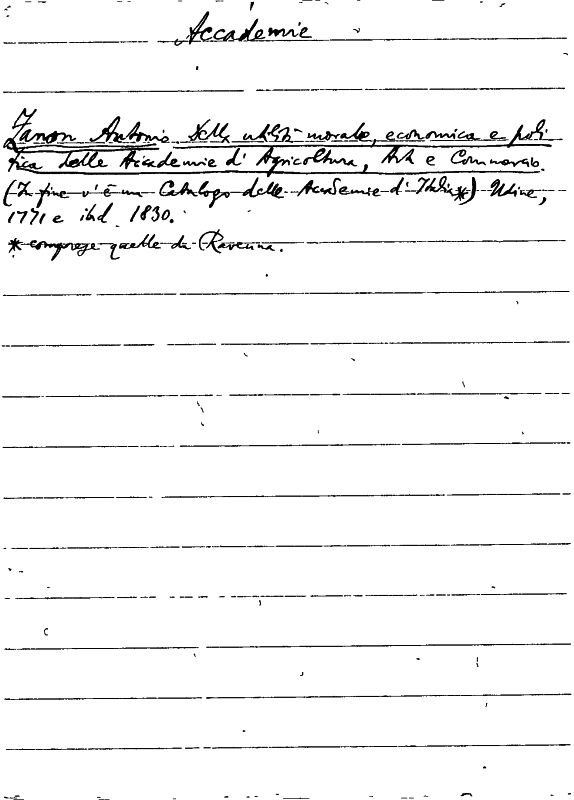 Accademie
Zanon Antonio Della utilità morale, economica e poli
tica delle Accademie d'Agricoltura, Arti e Commercio.
(In fine v'è un Catalogo delle Accademie d'Italia*) Udine,
1771 e ibid. 1830.
* comprese quelle di Ravenna.